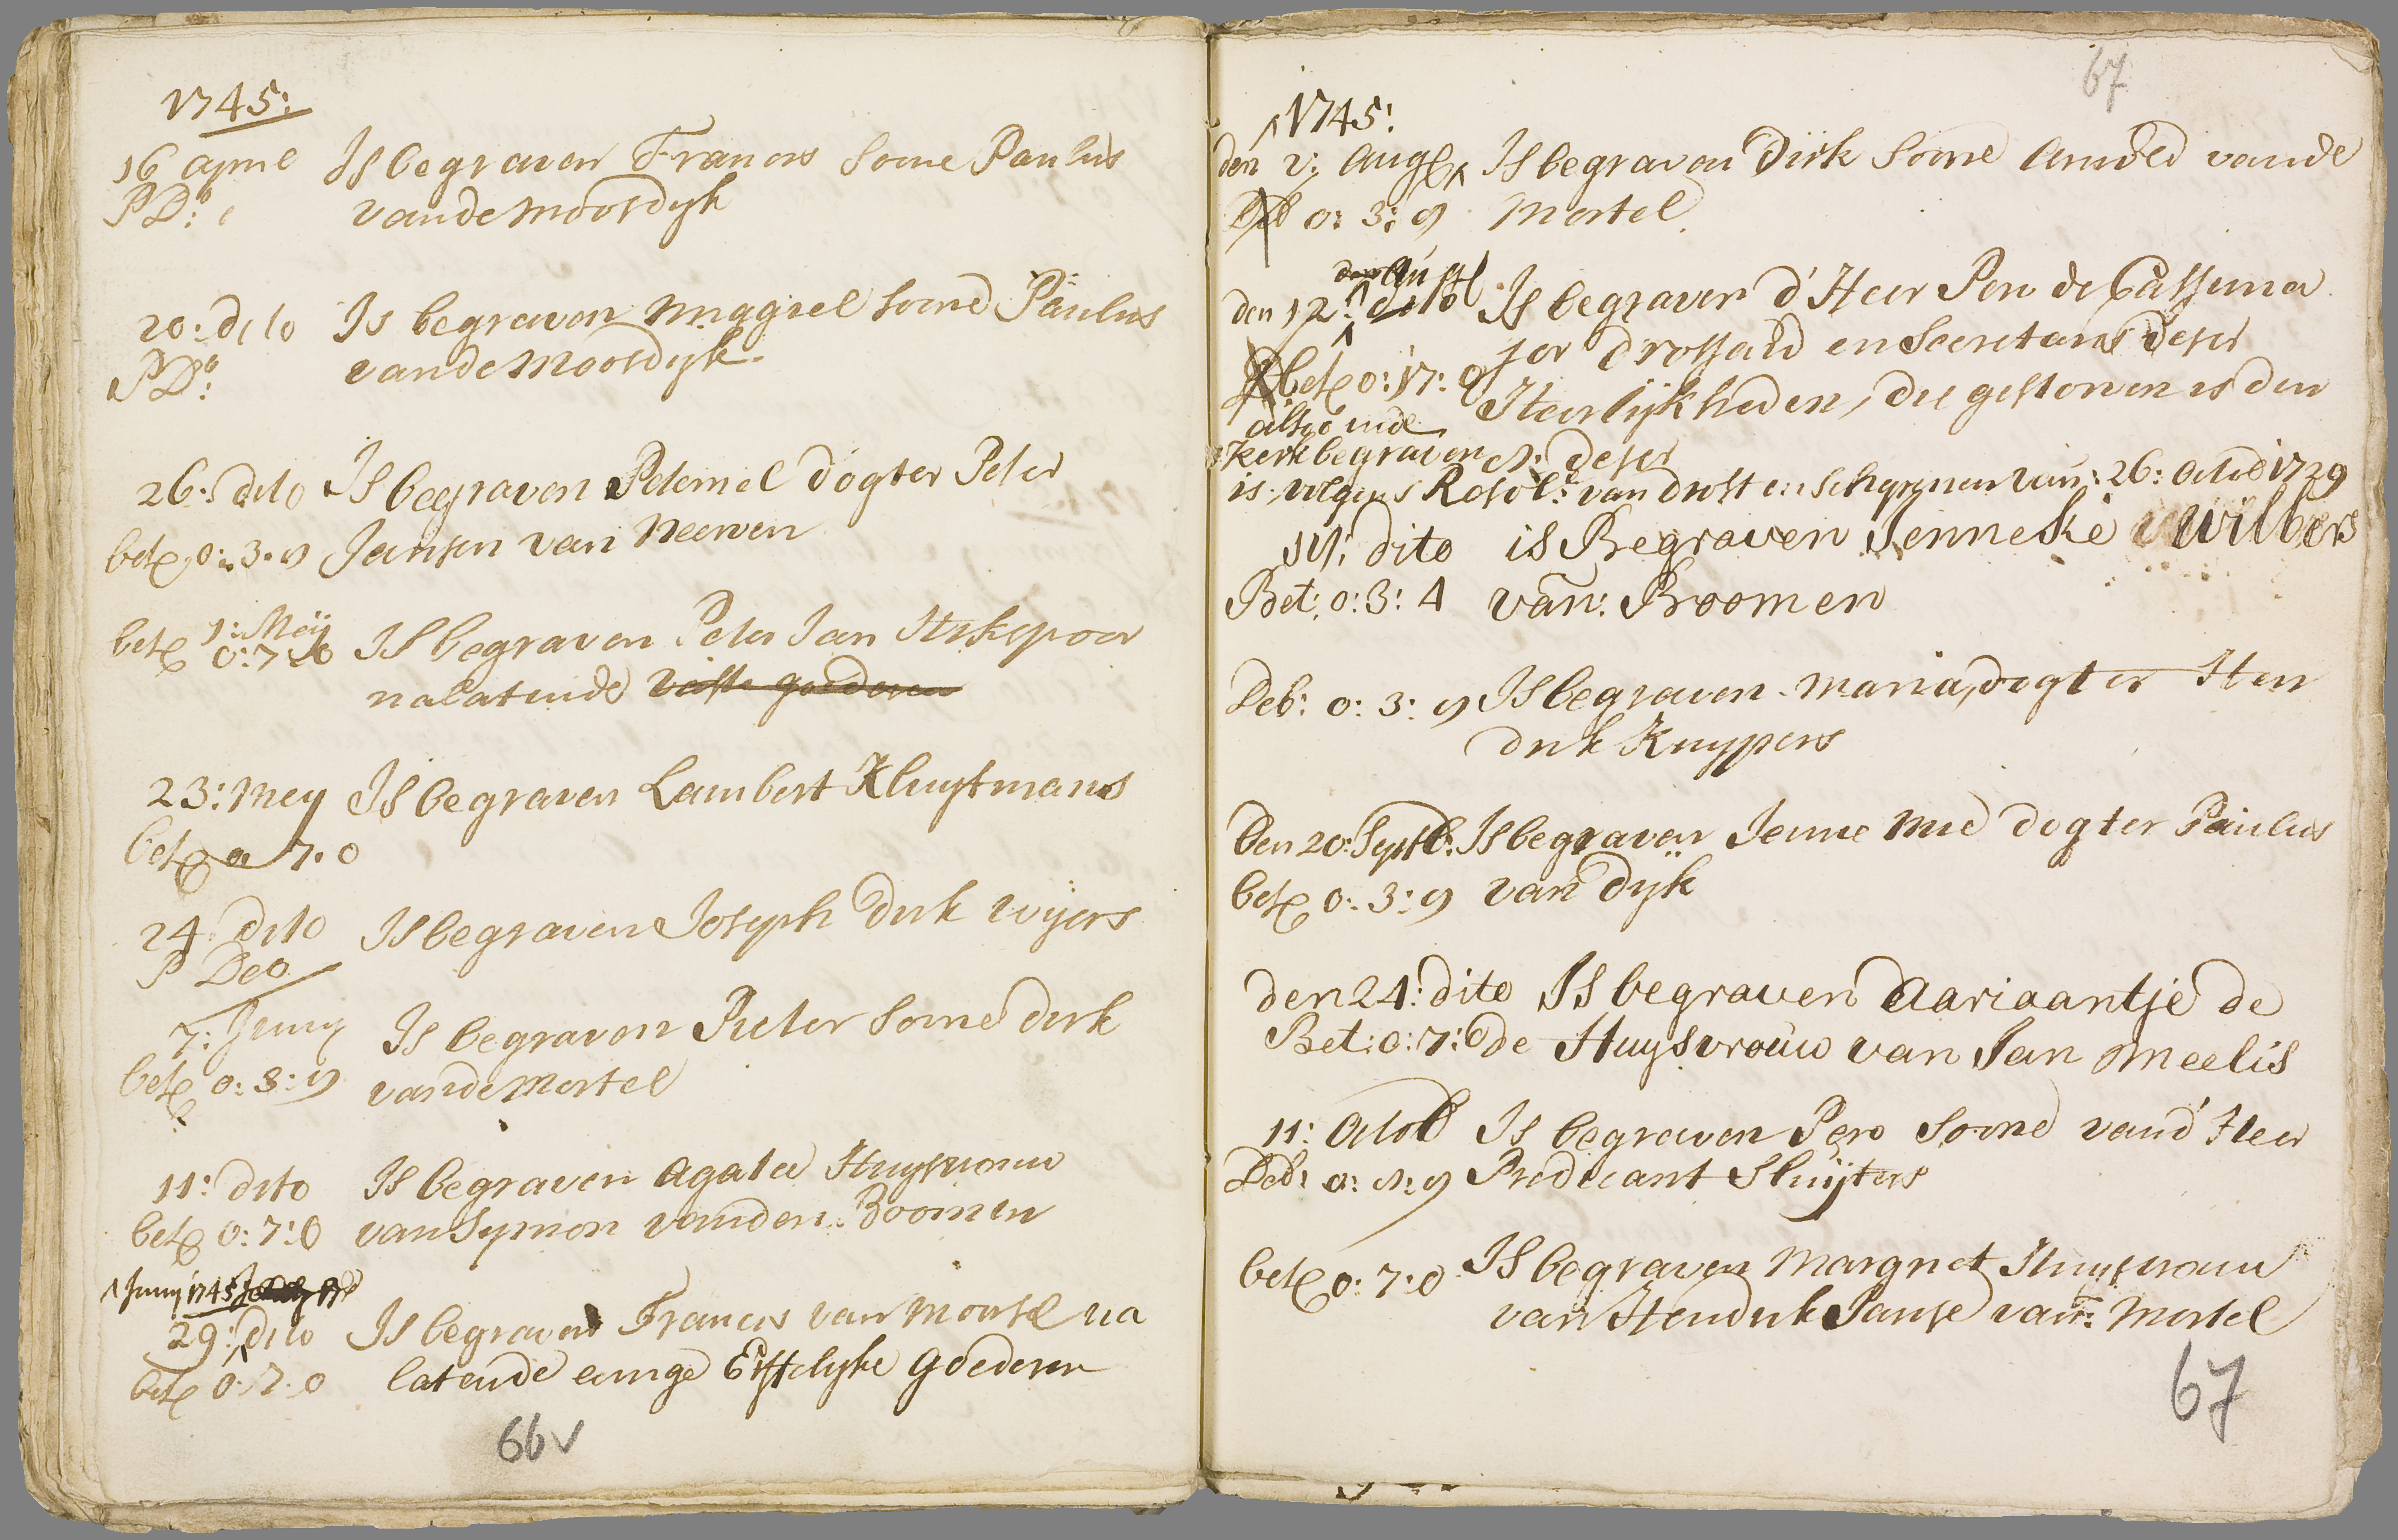 1745:
16 april Is begraven Francis Soone Paulus
P D:o vande Moosdyk
20: dito Is begraven Miggiel Soone Paulus
P D:o vande Moosdyk
26: dito Is begraven Peternel dogter Peter
bet 0:3:9 Jansen van Neerven
1: Meij
bet 0:7:0 Is begraven Peter Jan
nalatende vaste goederen
23: Mey Is begraven Lambert Kluytmans
bet 0 7:0
24 dito Is begraven Joseph Dirk Wijers
P Deo
7: Juny Is begraven Pieter Soone dirk
bet 0:3:9 vande Mortel
11: dito Is begraven Agata Huysvrouw
bet 0:7:0 van Symon vanden Boomen
Juny 1745
29: dito Is begraven Francis van Moorsel na
bet 0:7:0 latende eenige Erffelyke Goederen
66v
67
1745:
den 2: Aug Is begraven Dirk Soone vande
0:3:9 Mortel
Aug
den 12: dito Is begraven d'Heer Pero de
Drossard en Secretaris deser
bet 0:17:0 Heerlijkheden, die gestorven is den
alsoo inde
kerk begraven deser
is, volgens Resol: van Drost en Schepenen van: 26: Octob 1729
19: dito is Begraven Jenneke Wilbers
Bet: 0:3:4 van: Broomen
Deb: 0:3:9 Is begraven Maria, dogter Hen
drik Kuypers
Den 20: Septb: Is begraven Jenne Mie dogter Paulus
bet 0:3:9 van Dijk
den 24: dito Is begraven Aariaantje de
Bet: 0:7:0 de Huysvrouw van Jan Meelis
11: Octob Is begraven Pero Soone vand Heer
Deb: 0:9:9 Predicant Sluijters
bet 0:7:0 Is begraven Margriet Huysvrouw
van Hendrik Janse van: Mortel
67